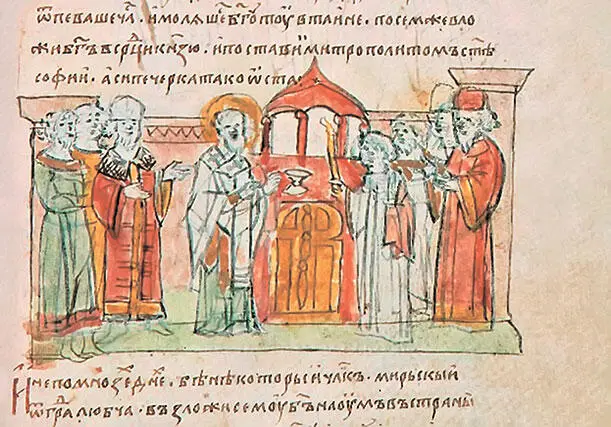 ѿпеваше ча҃ . и молѧше бг҃а тоу в таине . посем же вло
жи бг҃ъ в ср҃дци кн҃зю . и постави и митрополитомъ ст҃ѣ
софии . а си печерка тако ѿста
И не по мнозѣ дн҃е . бѣ нѣкоторыи чл҃къ . мирьскыи
ѿ гра любча . възложи семоу бг҃ъ на оумъ въ страны